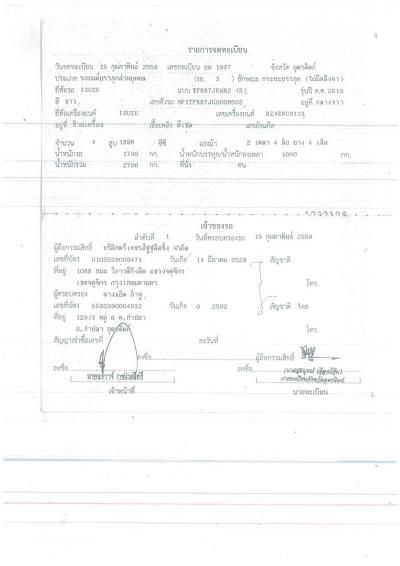 4
รายการจดทะเบียน
วันจดทะเบียน 15 กุมภาพันธ์ 2559 เลขทะเบียน ผต 1937 จังหวัด อุตรดิตถ์
ประเภท รถยนต์บรรทุกส่วนบุคคล (รย. 3 ) ลักษณะ กระบะบรรทุก (ไม่มีหลังคา)
ยี่ห้อรถ ISUZU แบบ รุ่นปี ค.ศ. 2015
สี ขาว, เลขตัวรถ อยู่ที่ กลางขวา
ยี่ห้อเครื่องยนต์ ISUZU เลขเครื่องยนต์
อยู่ที่ เชื้อเพลิง ดีเซล เลขถังแก๊ส
จำนวน 4 สูบ 1898 ซีซี แรงม้า 2 เพลา 4 ล้อ ยาง 4 เส้น
น้ำหนักรถ 1700 กก. น้ำหนักบรรทุก/น้ำหนักลงเพลา 1000 กก.
น้ำหนักรวม 2700 กก. ที่นั่ง คน
เจ้าของรถ
ลำดับที่ 1 วันที่ครอบครองรถ 15 กุมภาพันธ์ 2559
ผู้ถือกรรมสิทธิ์ จำกัด
เลขที่บัตร 0105528009471 วันเกิด 14 มีนาคม 2528 สัญชาติ
ที่อยู่ 1088 ถนน วิภาวดีรังสิต แขวงจตุจักร
เขตจตุจักร กรุงเทพมหานคร โทร.
ผู้ครอบครอง
เลขที่บัตร 5530390004932 วันเกิด 0 2502 สัญชาติ ไทย
ที่อยู่ 129/3 หมู่ 6 ต.ท่าปลา
อ.ท่าปลา อุตรดิตถ์ โทร.
สัญญาเช่าซื้อเลขที่ ลงวันที่
ลงชื่อ ผู้ถือกรรมสิทธิ์
ลงชื่อ ลงชื่อ
เจ้าหน้าที่ นายทะเบียน
5